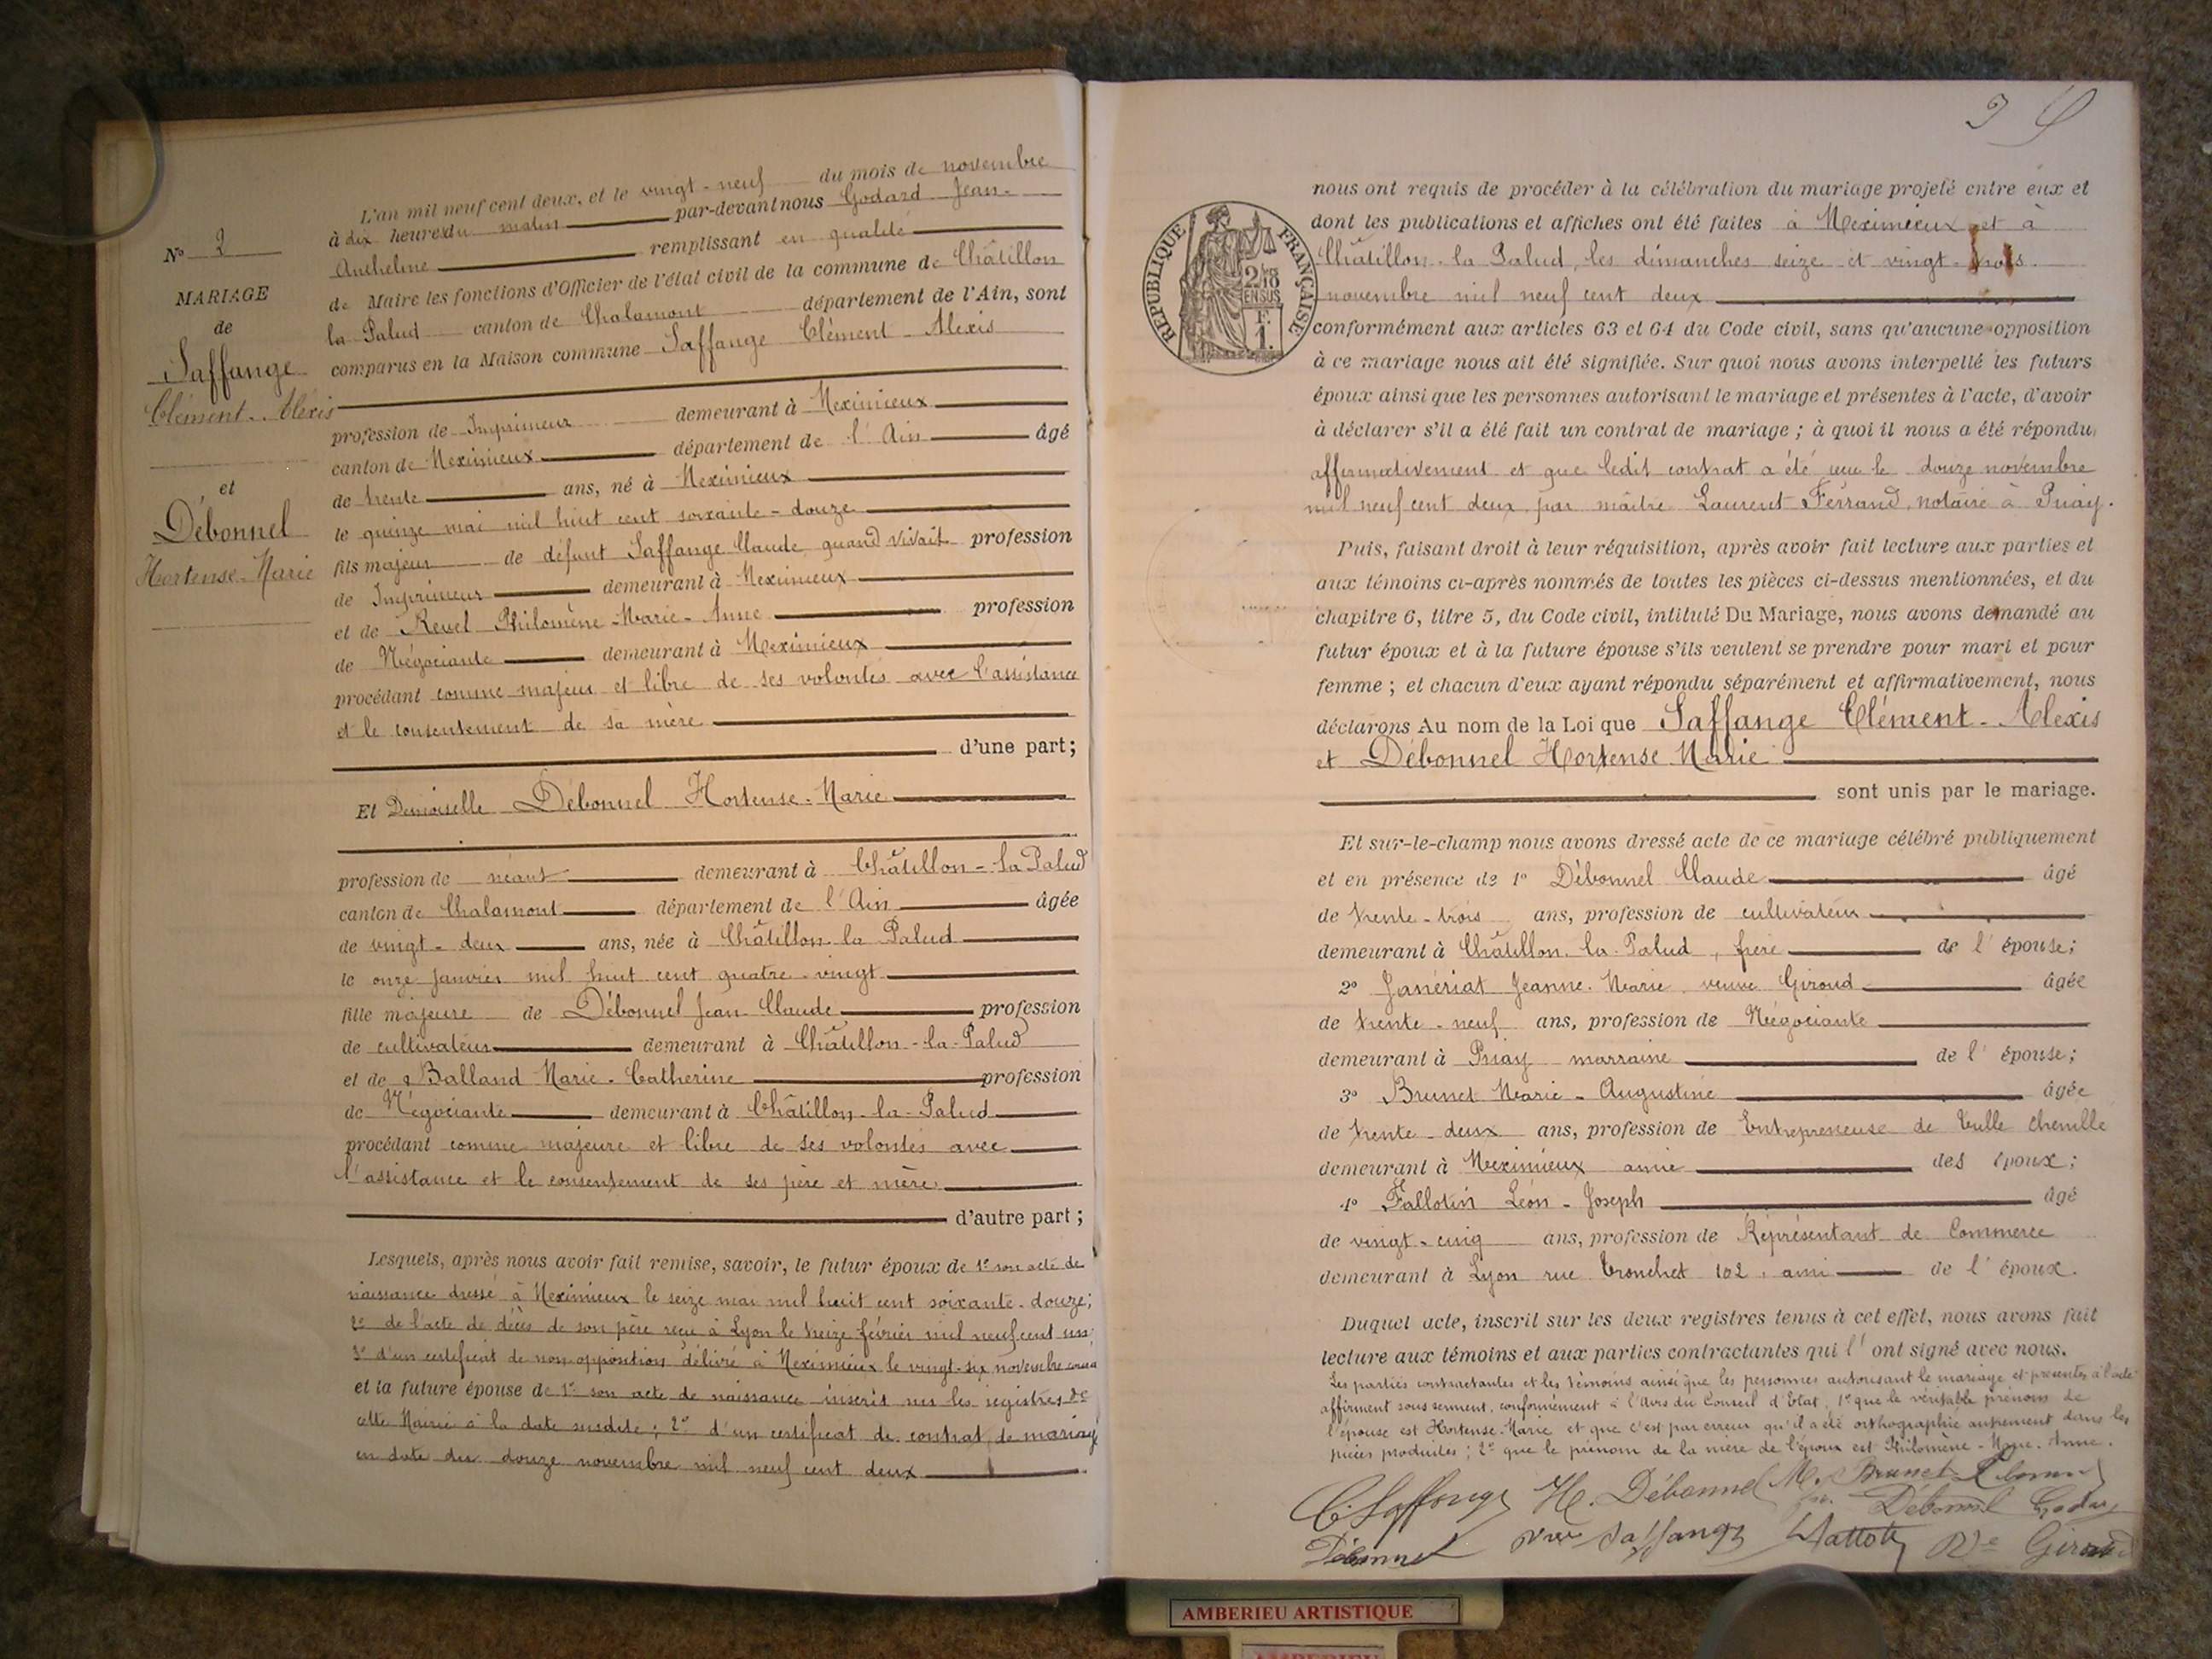 L'an mil neuf cent deux, et le vingt-neuf du mois de novembre
à dix heures du matin par-devant nous Godard Jean-
Anthelme remplissant en qualité
de Maire les fonctions d'Officier de l'état civil de la commune de Châtillon
la Palud canton de Chalamont département de l'Ain, sont
comparus en la Maison commune Saffange Clément-Alexis
N° 2
MARIAGE
de
Saffange
Clément-Alexis
et
Débonnel
Hortense-Marie
profession de Imprimeur demeurant à Meximieux
canton de Meximieux département de l'Ain âgé
de trente ans, né à Meximieux
le quinze mai mil huit cent soixante-douze
fils majeur de défunt Saffange Claude, quand vivait profession
de Imprimeur demeurant à Meximieux
et de Revel Philomène-Marie-Anne profession
de Négociante demeurant à Meximieux
procédant comme majeur et libre de ses volontés avec l'assistance
et le consentement de sa mère
d'une part;
Et Demoiselle Débonnel Hortense-Marie
profession de néant demeurant à Châtillon-la Palud
canton de Chalamont département de l'Ain âgée
de vingt-deux ans, née à Châtillon la Palud
le onze janvier mil huit cent quatre-vingt
fille majeure de Débonnel Jean-Claude profession
de cultivateur demeurant à Châtillon-la-Palud
et de Balland Marie-Catherine profession
de Négociante demeurant à Châtillon-la-Palud
procédant comme majeure et libre de ses volontés avec
l'assistance et le consentement de ses père et mère
d'autre part;
Lesquels, après nous avoir fait remise, savoir, le futur époux de 1° son acte de
naissance dressé à Meximieux le seize mai mil huit cent soixante-douze;
2° de l'acte de décès de son père reçu à Lyon le treize février mil neuf cent un;
3° d'un certificat de non opposition délivré à Meximieux le vingt-six novembre
et la future épouse de 1° son acte de naissance inscrit sur les registres de
cette Mairie à la date susdite; 2° d'un certificat de contrat de mariage
en date du douze novembre mil neuf cent deux
RÉPUBLIQUE FRANÇAISE
nous ont requis de procéder à la célébration du mariage projeté entre eux et
dont les publications et affiches ont été faites à Meximieux et à
Châtillon-la Palud, les dimanches seize et vingt-trois
novembre mil neuf cent deux
conformément aux articles 63 et 64 du Code civil, sans qu'aucune opposition
à ce mariage nous ait été signifiée. Sur quoi nous avons interpellé les futurs
époux ainsi que les personnes autorisant le mariage et présentes à l'acte, d'avoir
à déclarer s'il a été fait un contrat de mariage; à quoi il nous a été répondu
affirmativement et que ledit contrat a été reçu le douze novembre
mil neuf cent deux, par maître Laurent Ferrand, notaire à Priay.
Puis, faisant droit à leur réquisition, après avoir fait lecture aux parties et
aux témoins ci-après nommés de toutes les pièces ci-dessus mentionnées, et du
chapitre 6, titre 5, du Code civil, intitulé Du Mariage, nous avons demandé au
futur époux et à la future épouse s'ils veulent se prendre pour mari et pour
femme; et chacun d'eux ayant répondu séparément et affirmativement, nous
déclarons Au nom de la Loi que Saffange Clément-Alexis
et Débonnel Hortense Marie
sont unis par le mariage.
Et sur-le-champ nous avons dressé acte de ce mariage célébré publiquement
et en présence de 1° Débonnel Claude âgé
de trente-trois ans, profession de cultivateur
demeurant à Châtillon-la-Palud, frère de l'épouse;
2° Janériat Jeanne-Marie veuve Giroud âgée
de trente-neuf ans, profession de Négociante
demeurant à Priay marraine de l'épouse;
3° Brunet Marie-Augustine âgée
de trente-deux ans, profession de Entrepreneuse de Tulle chenille
demeurant à Meximieux amie des époux;
4° Fallotin Léon-Joseph âgé
de vingt-cinq ans, profession de Représentant de Commerce
demeurant à Lyon rue Tronchet 102, ami de l'époux.
Duquel acte, inscrit sur les deux registres tenus à cet effet, nous avons fait
lecture aux témoins et aux parties contractantes qui l'ont signé avec nous.
Les parties contractantes et les témoins ainsi que les personnes autorisant le mariage et présentes à l'acte
affirment sous serment, conformément à l'Avis du Conseil d'Etat, 1° que le véritable prénom de
l'épouse est Hortense-Marie et que c'est par erreur qu'il a été orthographié autrement dans les
pièces produites; 2° que le prénom de la mère de l'époux est Philomène-Marie-Anne.
C. Saffange H. Débonnel M. Brunet
Débonnel
Débonnel Vve Saffange Vve Giroud
AMBERIEU ARTISTIQUE